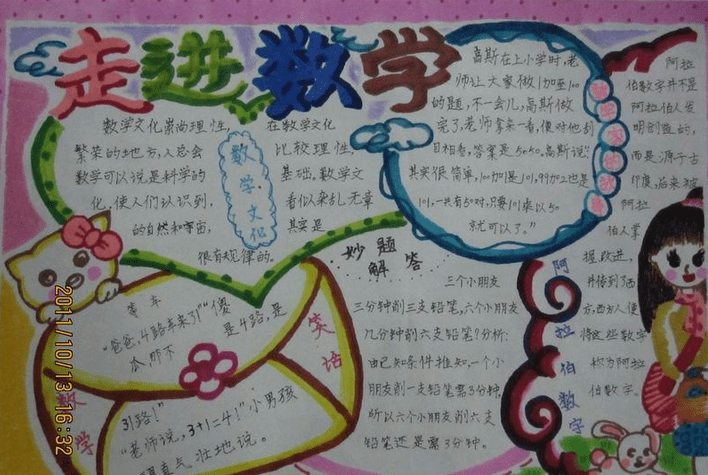 走进数学
数学文化崇尚理性,
繁荣的地方,人总会
数学可以说是科学的
化,使人们认识到,
的自然和宇宙,
很有规律的.
在数学文化
比较理性,
基础,数学文
看似杂乱无章
其实是
数学·文化
高斯在上小学时,老
师让大家做1加至100
的题,不一会儿,高斯做
完了,老师拿来一看,便对他刮
目相看,答案是5050,高斯说:"
其实很简单,100加1是101,99加2也是
101,一共有50对,只要101乘以50
就可以了。"
阿拉
伯数字并不是
阿拉伯人发
明创造的,
而是源于古
印度,后来被
阿拉
伯人掌
握、改进,
并传到了西
方,西方人便
将这些数字
称为阿拉
伯数字.
阿拉伯数字
妙题
解答
三个小朋友
三分钟削三支铅笔,六个小朋友
几分钟削六支铅笔?分析:
由已知条件推知,一个小
朋友削一支铅笔需3分钟,
所以六个小朋友削六支
铅笔还是需3分钟。
等车
"爸爸,4路车来了!""傻
瓜,那不是4路,是
31路!"
"老师说,3+1=4!"小男孩
理直气壮地说。
数学
笑话
2011/10/13 16:32